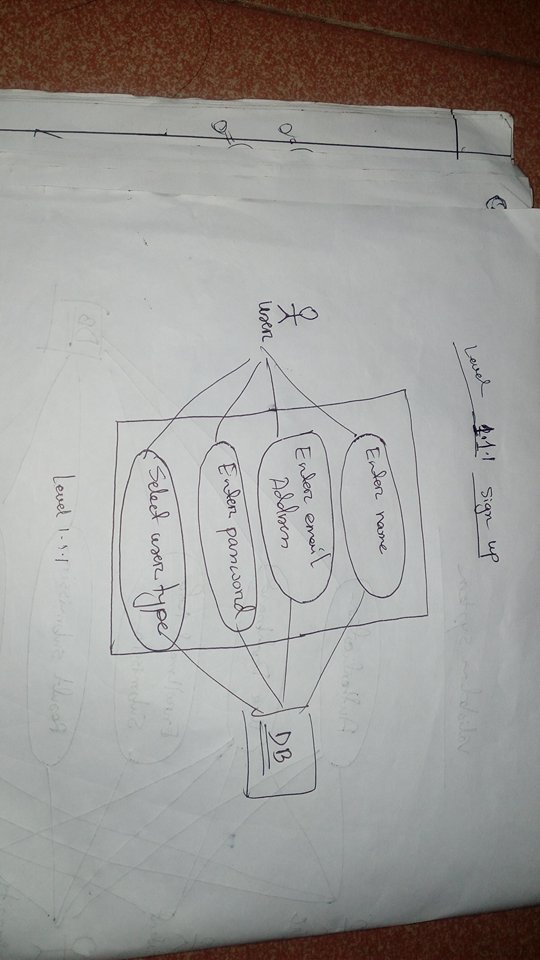 Level 1.1.1 Sign up
user
Enter name
Enter email
Address
Enter password
Select user type
DB
Level 1.1.1